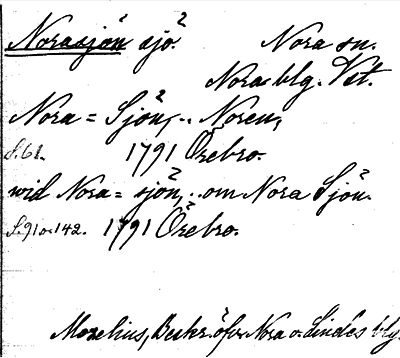 Norasjön sjö. Nora sn.
Nora blg. Vst.
Nora = Sjön, .. Noren,
S. 61. 1791 Örebro.
wid Nora = sjön, .. om Nora Sjön.
S. 91 o. 142. 1791 Örebro.
Morelius, Beskr. öfver Nora o. Lindes blg.